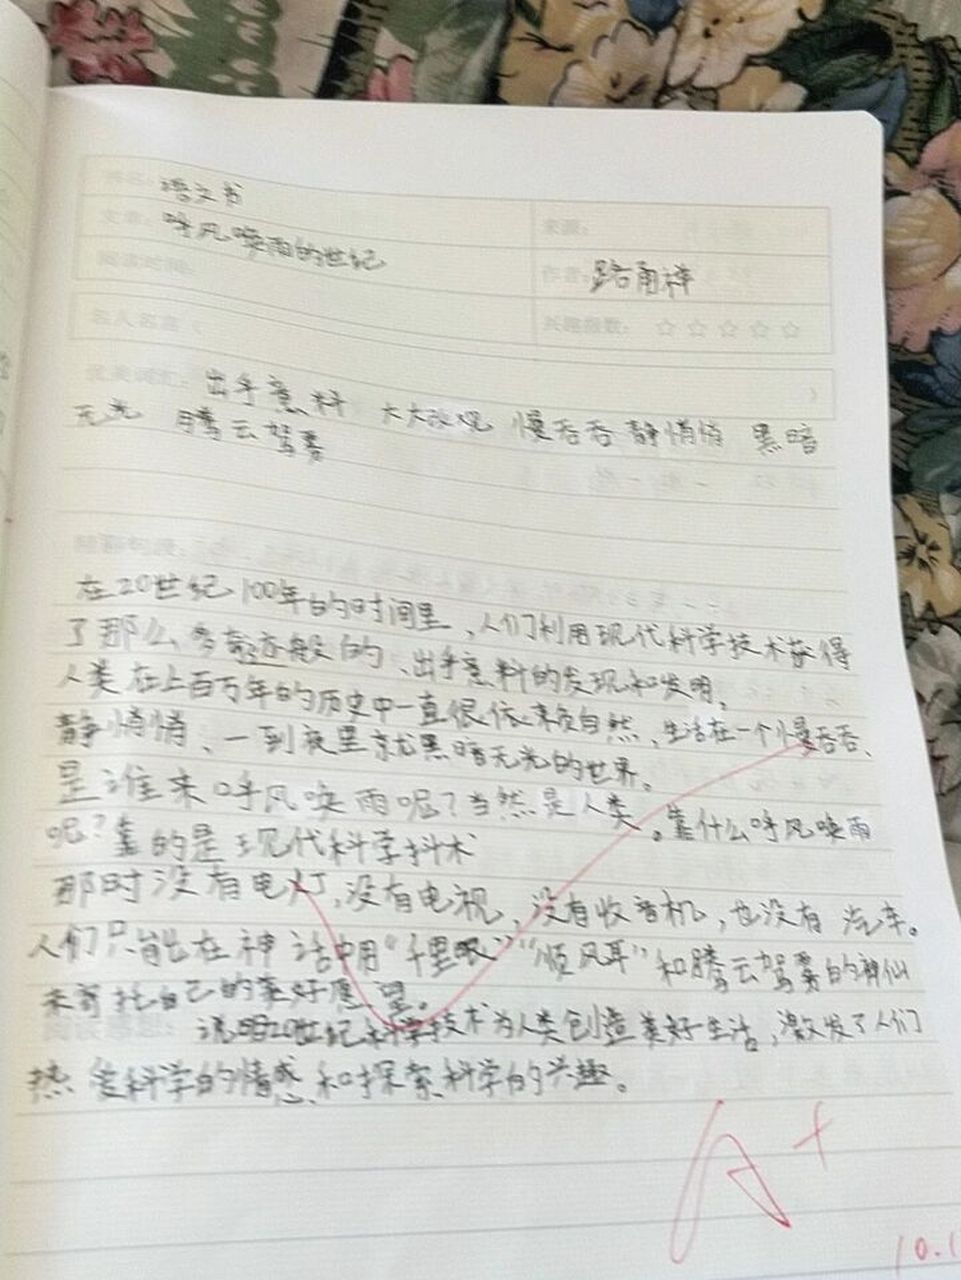 语文书
文章：呼风唤雨的世纪
来源：
作者：路甬祥
阅读时间：
名人名言（ ）
兴趣指数：☆☆☆☆☆
优美词汇：出乎意料 大大改观 慢吞吞 静悄悄 黑暗
无光 腾云驾雾
精彩句段：
在20世纪100年的时间里，人们利用现代科学技术获得
了那么多奇迹般的、出乎意料的发现和发明。
人类在上百万年的历史中一直很依赖自然、生活在一个慢吞吞、
静悄悄、一到夜里就黑暗无光的世界。
是谁来呼风唤雨呢？当然是人类。靠什么呼风唤雨
呢？靠的是现代科学技术
那时没有电灯，没有电视，没有收音机，也没有汽车。
人们只能在神话中用“千里眼”“顺风耳”和腾云驾雾的神仙
来寄托自己的美好愿望。
说明20世纪科学技术为人类创造美好生活，激发了人们
热爱科学的情感和探索科学的兴趣。
A+
10.1